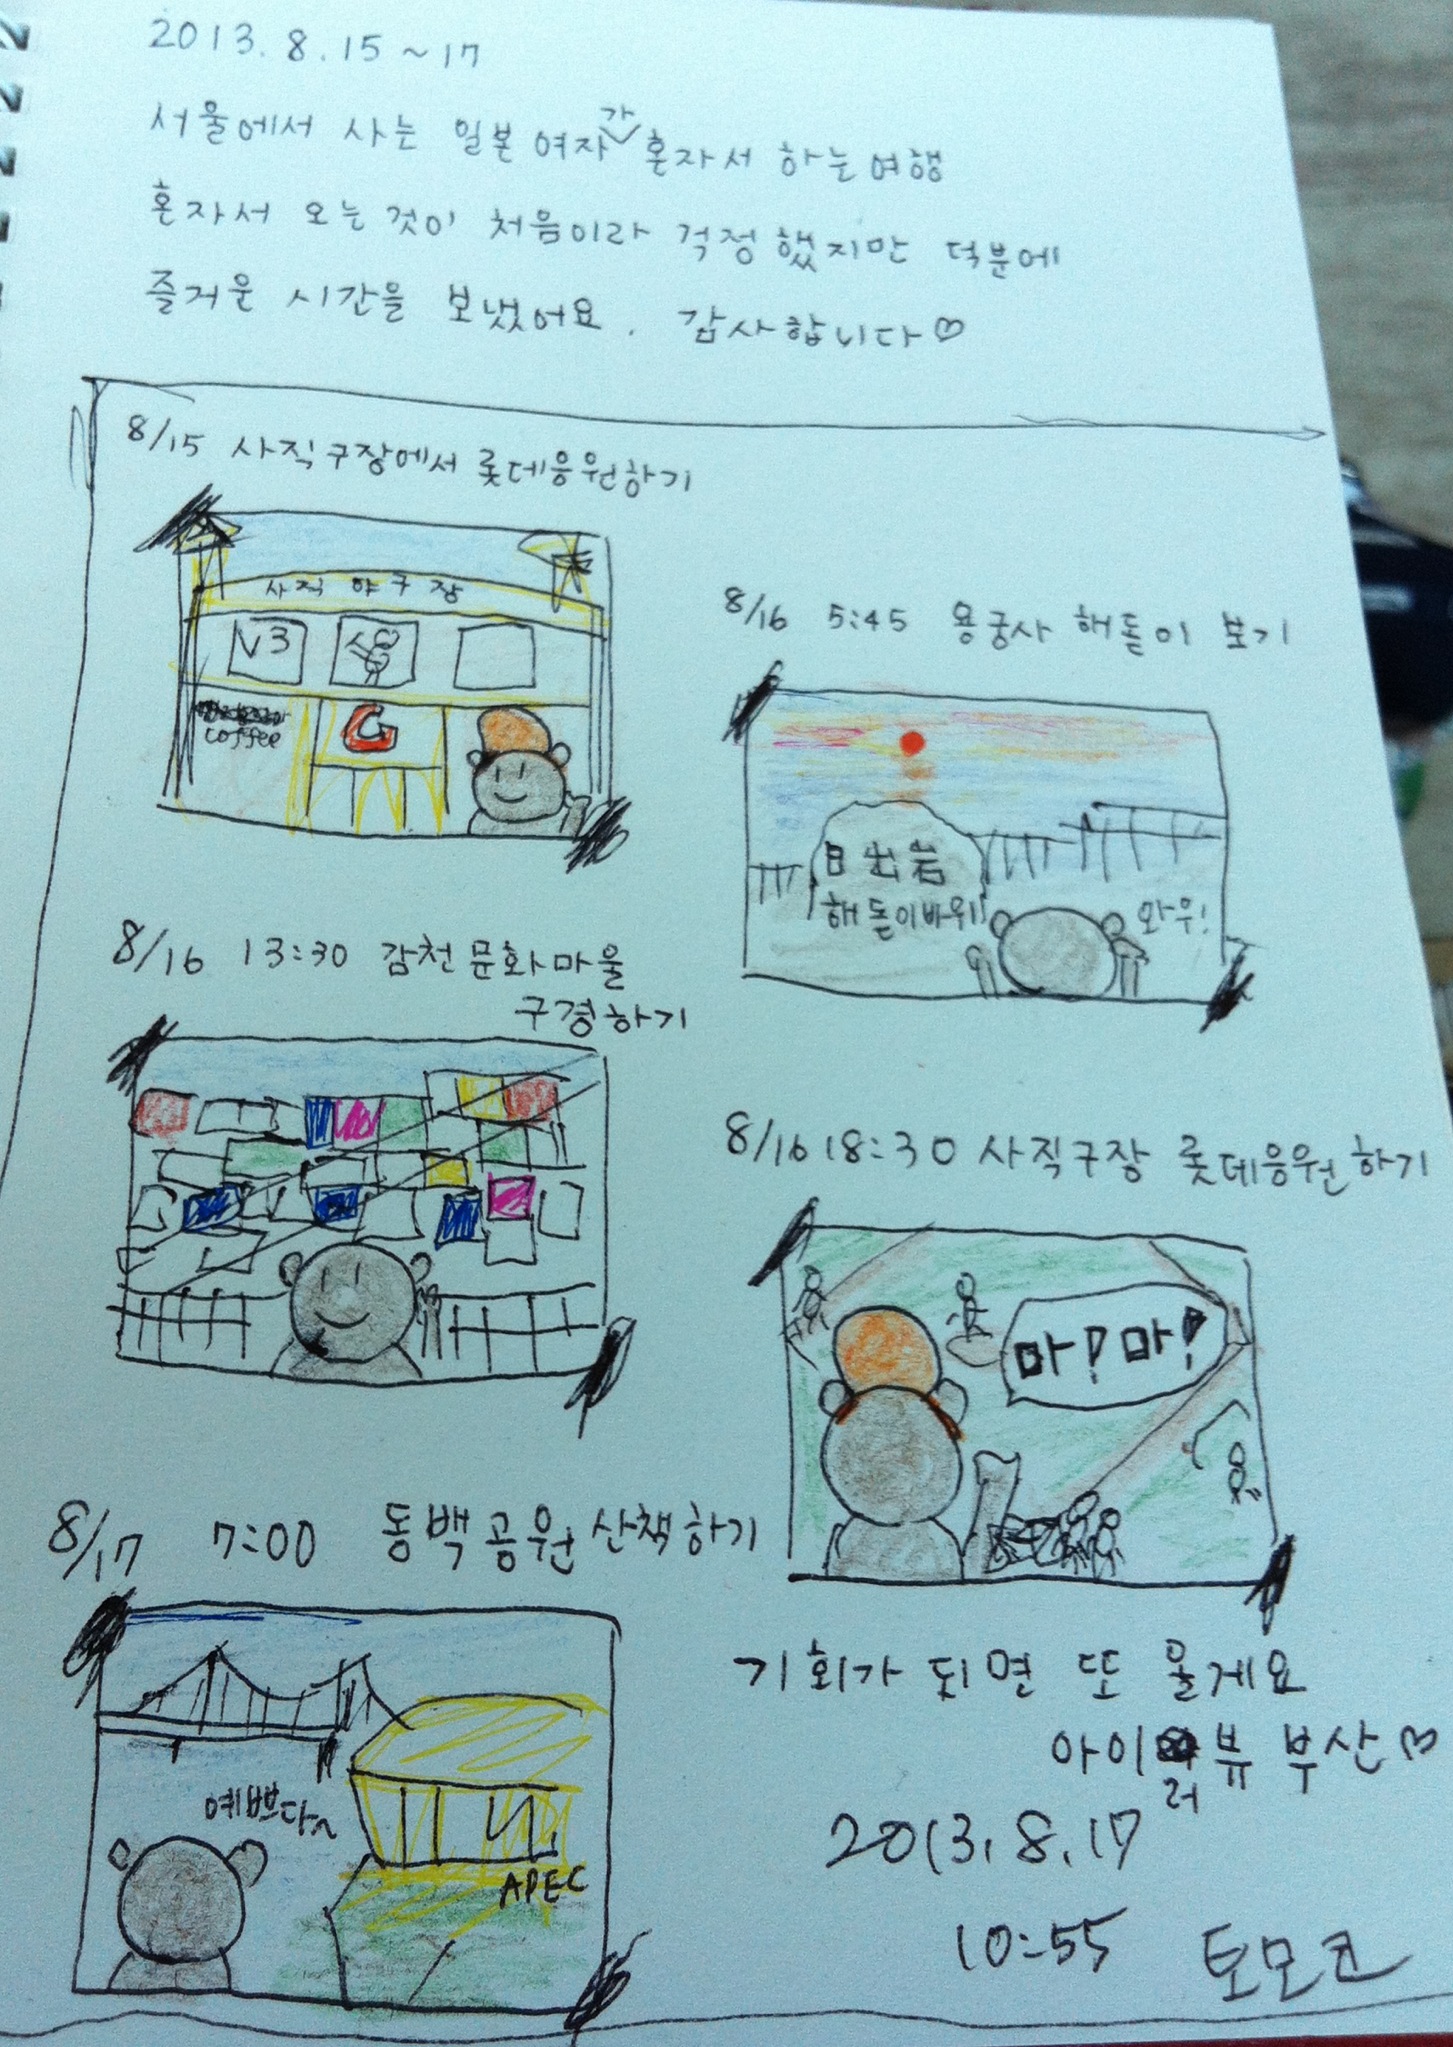 2013. 8. 15 ~ 17
서울에서 사는 일본 여자가 혼자서 하는 여행
혼자서 오는 것이 처음이라 걱정했지만 덕분에
즐거운 시간을 보냈어요. 감사합니다♡
8/15 사직구장에서 롯데응원하기
사직 야구장
V3
coffee
G
8/16 5:45 용궁사 해돋이 보기
日出岩
해돋이바위
와우!
8/16 13:30 감천문화마을
구경하기
8/16 18:30 사직구장 롯데응원하기
마! 마!
8/17 7:00 동백공원산책하기
예쁘다~
APEC
기회가 되면 또 올게요
아이러뷰 부산♡
2013. 8. 17
10:55 토모코